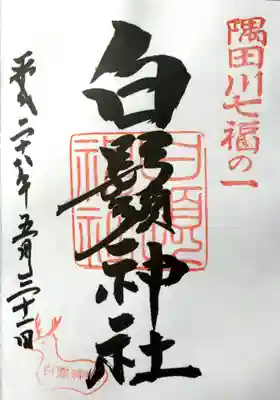 隅田川七福の一
白鬚神社
平成二十八年五月三十一日
白鬚神社